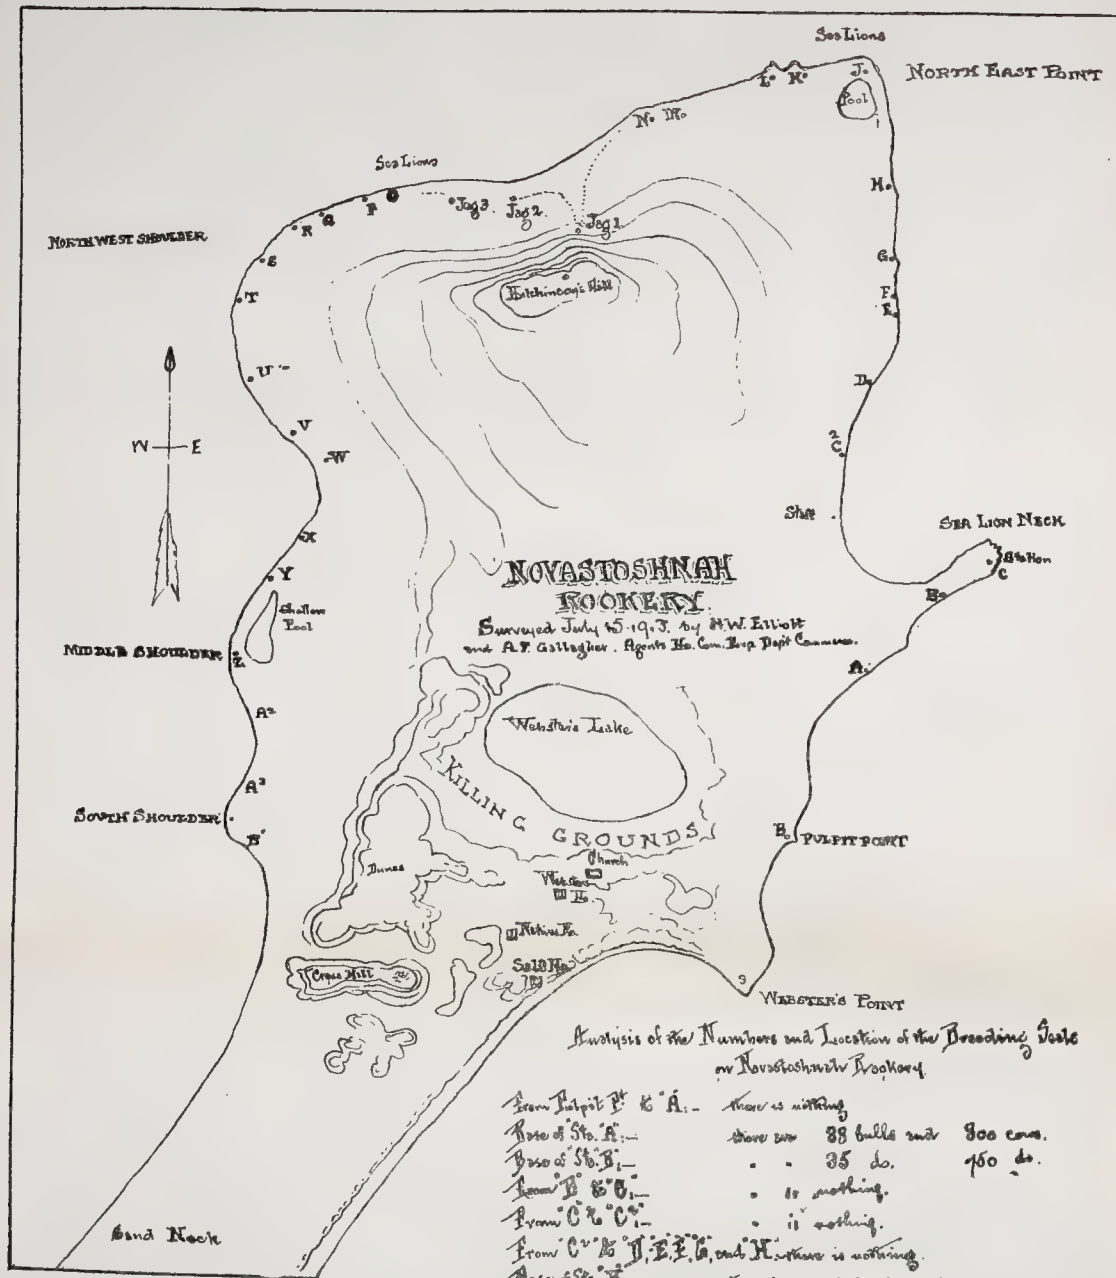 Sea Lions
NORTH EAST POINT
L. K. J.
Pool
N. M.
Sea Lions
H.
R Q P O Jag 3 Jag 2 Jag 1
NORTH WEST SHOULDER
S
G.
Hutchinson's Hill
T
F.
E.
U
D.
V
2
C.
W E
W
Staff
SEA LION NECK
X
Station
C
NOVASTOSHNAH
ROOKERY.
Y
B.
Shallow
Pool
Surveyed July by H.W. Elliott
and A.F. Gallagher. Agents Ho. Com. Exp. Dept Commerce.
MIDDLE SHOULDER
Z
A.
A²
Webster's Lake
KILLING GROUNDS
A³
SOUTH SHOULDER
B.
PULPIT POINT
B
Church
Dunes
Websters
H.
Native Ho.
Salt Ho.
Cross Hill
WEBSTER'S POINT
Analysis of the Numbers and Location of the Breeding Seals
on Novastoshnah Rookery.
From Pulpit Pt to "A":– there is nothing
Base of "Sta. "A":– there are 38 bulls and 900 cows.
Base of "Sta. "B":– " " 35 do. 750 do.
From "B" to "C":– " is nothing.
From "C" to "C²":– " is nothing.
From "C²" to "D", "E", "F", "G", and "H". there is nothing.
Sand Neck
Base of Sta. "H"